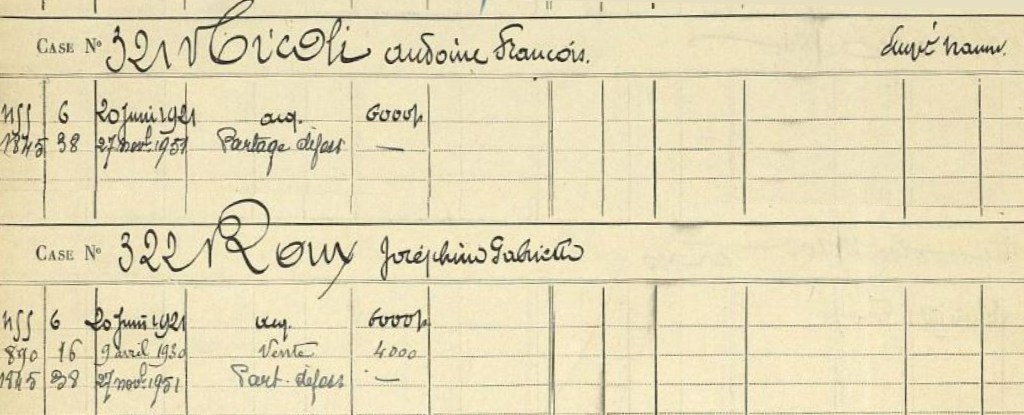 CASE N° 321 Nicoli Antoine François.
6 20 juin 1921 acq. 6000f
1845 38 27 nov. 1951 Partage défass —
CASE N° 322 Roux Joséphine Gabrielle
6 20 Juin 1921 acq. 6000f
890 16 9 avril 1930 Vente 4000
1845 38 27 nov. 1951 Part. défass —